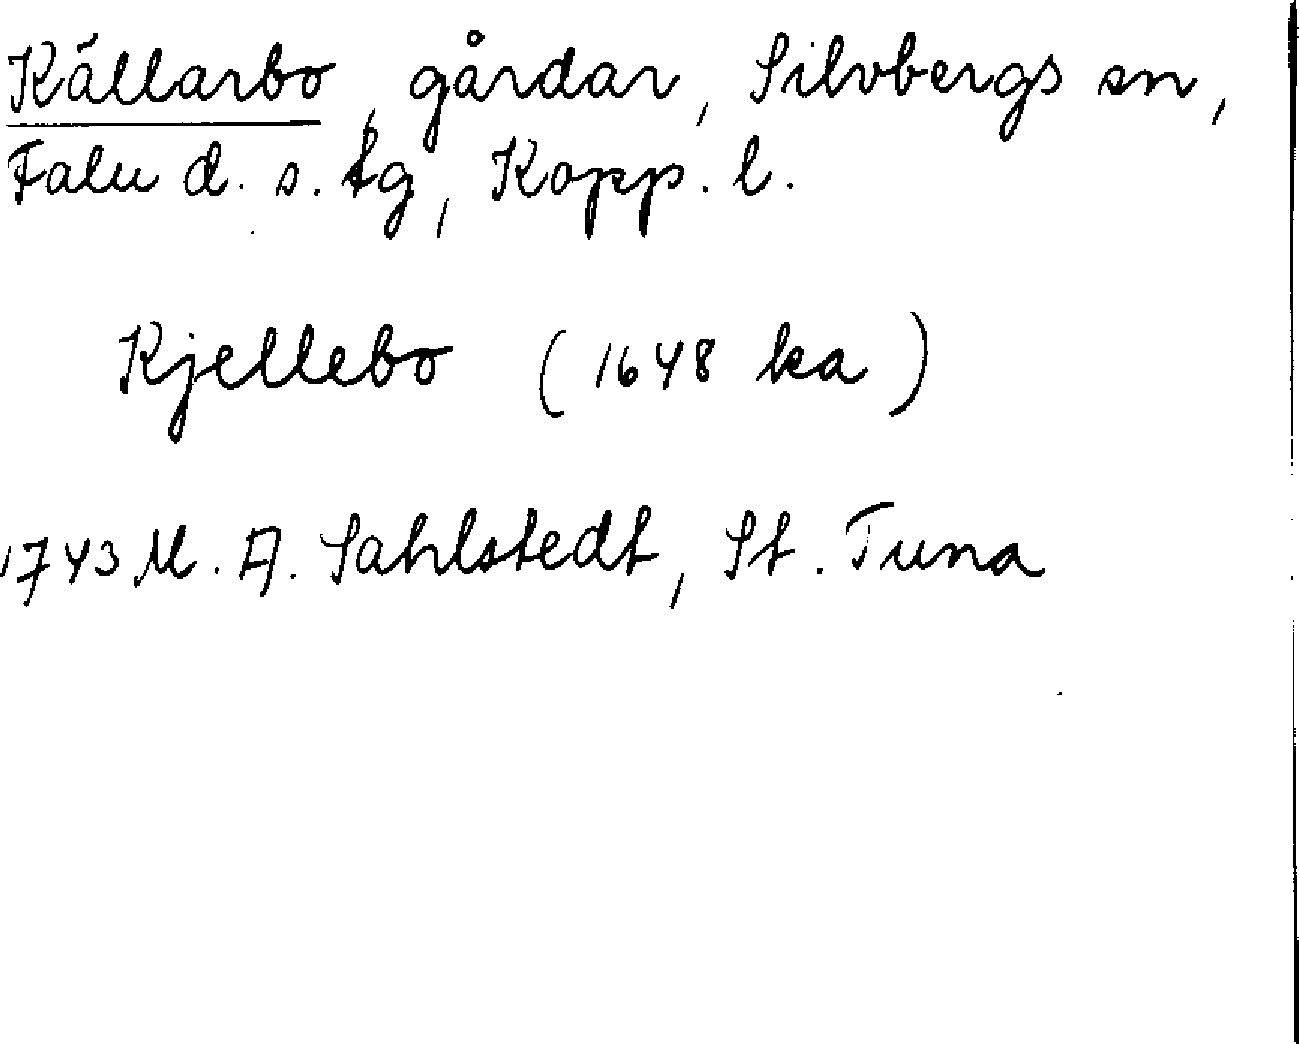 Källarbo, gårdar, Silvbergs sn,
Falu d. s. tg, Kopp. l.
Kjellebo (1648 ka)
1743 M. A. Sahlstedt, St. Tuna